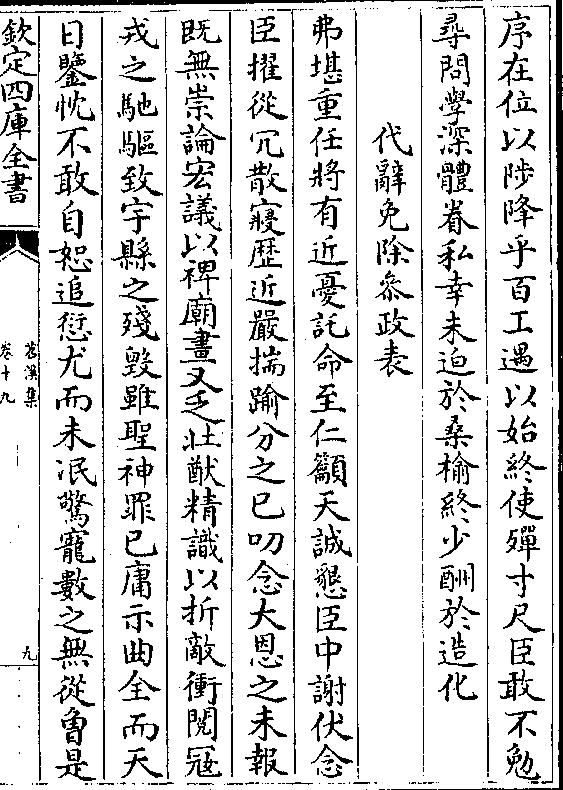 序在位以陟降乎百工遇以始終使殫寸尺臣敢不勉
尋問學深體眷私幸未迫於桑榆終少酬於造化
代辭免除叅政表
弗堪重任將有近憂託命至仁籲天誠懇臣中謝伏念
臣擢從冗散寖歴近嚴揣踰分之已叨念大恩之未報
既無崇論宏議以裨廟畫又乏壯猷精識以折敵衝閱冦
戎之馳驅致宇縣之殘毀雖聖神罪已庸示曲全而天
日鑒忱不敢自恕追愆尤而未泯驚寵數之無從曾是
欽定四庫全書
苕溪集
卷十九
九